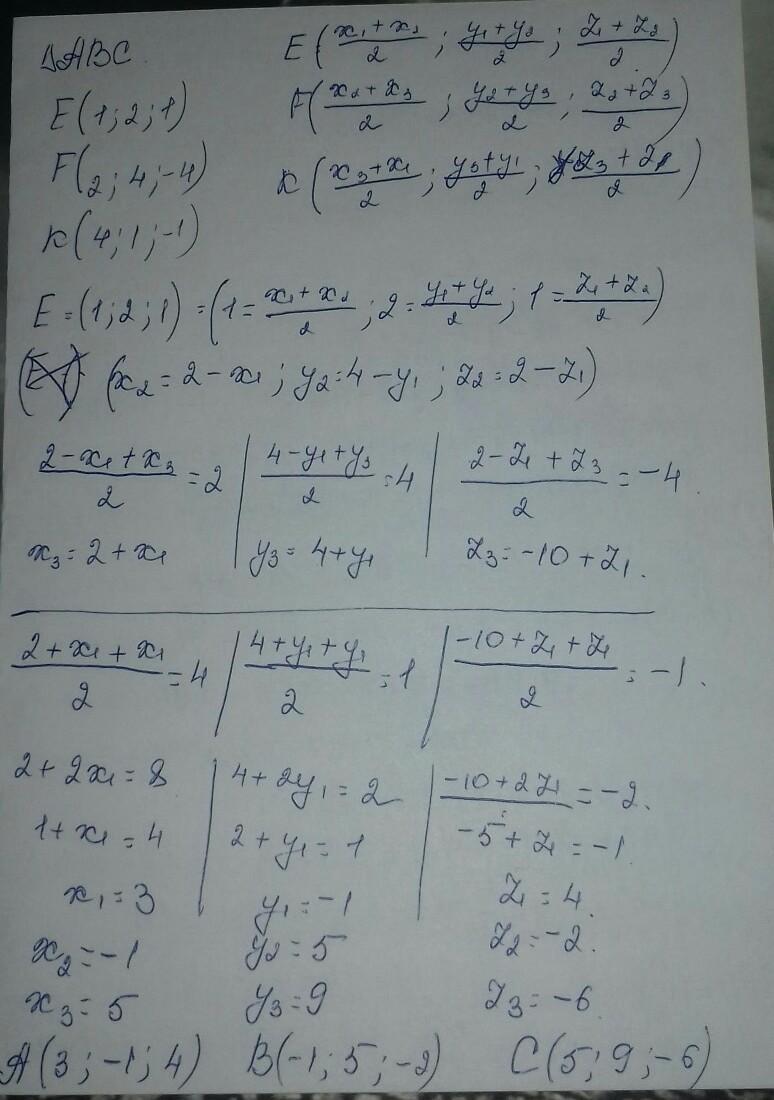 △ABC. E(x₁+x₂/2 ; y₁+y₂/2 ; z₁+z₂/2)
E(1;2;1) F(x₂+x₃/2 ; y₂+y₃/2 ; z₂+z₃/2)
F(2;4;-4) K(x₃+x₁/2 ; y₃+y₁/2 ; z₃+z₁/2)
K(4;1;-1)
E=(1;2;1)=(1=x₁+x₂/2 ; 2=y₁+y₂/2 ; 1=z₁+z₂/2)
(x₂=2-x₁ ; y₂=4-y₁ ; z₂=2-z₁)
2-x₁+x₃/2=2 | 4-y₁+y₃/2=4 | 2-z₁+z₃/2=-4.
x₃=2+x₁ | y₃=4+y₁ | z₃=-10+z₁.
2+x₁+x₁/2=4 | 4+y₁+y₁/2=1 | -10+z₁+z₁/2=-1.
2+2x₁=8 | 4+2y₁=2 | -10+2z₁=-2.
1+x₁=4 | 2+y₁=1 | -5+z₁=-1
x₁=3 | y₁=-1 | z₁=4.
x₂=-1 y₂=5 z₂=-2.
x₃=5 y₃=9 z₃=-6
A(3;-1;4) B(-1;5;-2) C(5;9;-6)